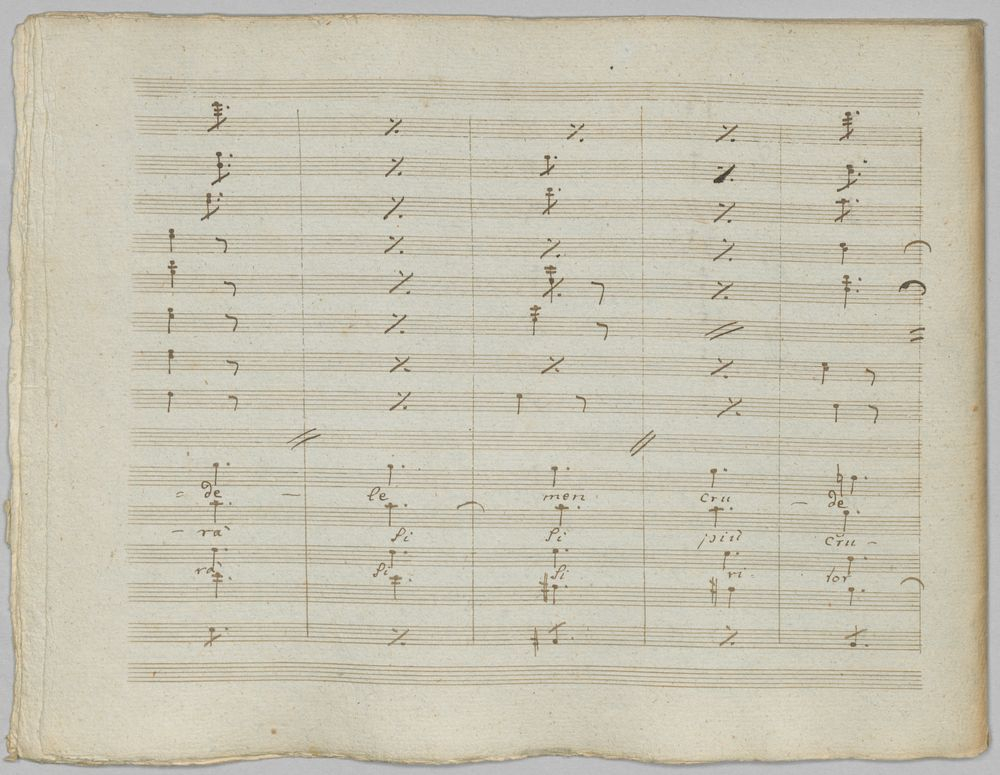 = de — le men cru — de
— rà si si più cru —
rà si si ri tor